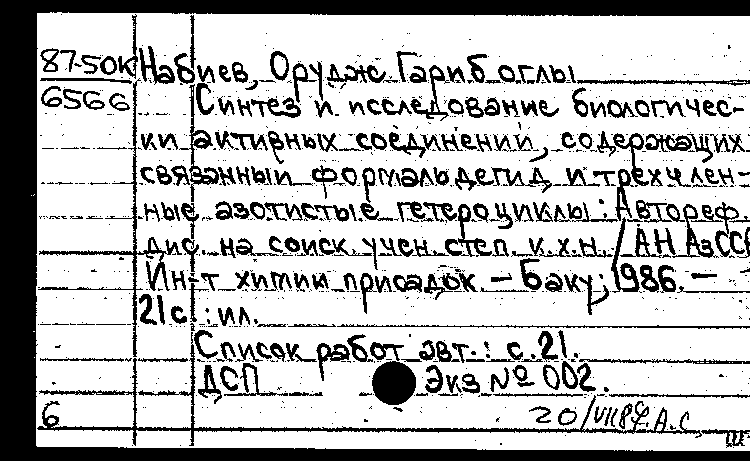 87-50К Набиев, Орудж Гариб оглы
6566 Синтез и исследование биологичес-
ки активных соединений, содержащих
связанный формальдегид и трехчлен-
ные азотистые гетероциклы : Автореф.
дис. на соиск. учен. степ. к.х.н. / АН АзССР
Ин-т химии присадок. — Баку, 1986. —
21 с. : ил.
Список работ авт.: с. 21.
ДСП Экз № 002.
6 20/VII 87. А.С.